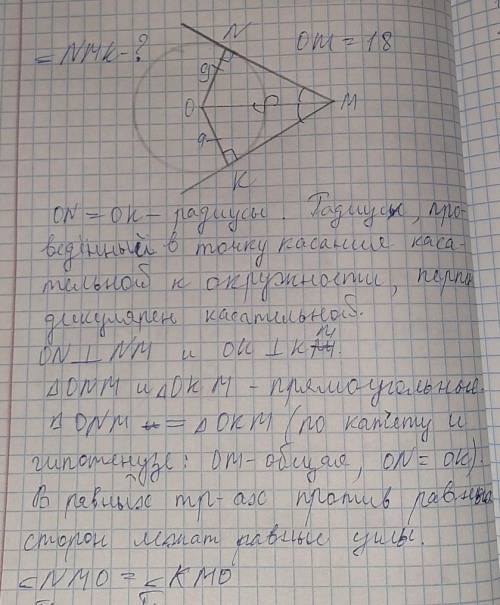 ∠NMK-?
N
OM = 18
9
O
M
9
K
ON = OK - радиусы. Радиусы, про-
ведённый в точку касания каса-
тельной к окружности, перпен
дикулярен касательной.
ON ⊥ NM и OK ⊥ KM.
△ONM и △OKM - прямоугольные.
△ONM = △OKM (по катету и
гипотенузе: OM - общая, ON = OK).
В равных тр-ах против равных
сторон лежат равные углы.
∠NMO = ∠KMO